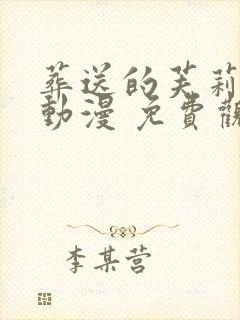 葬送的芙莉
動漫 免費觀
李某营